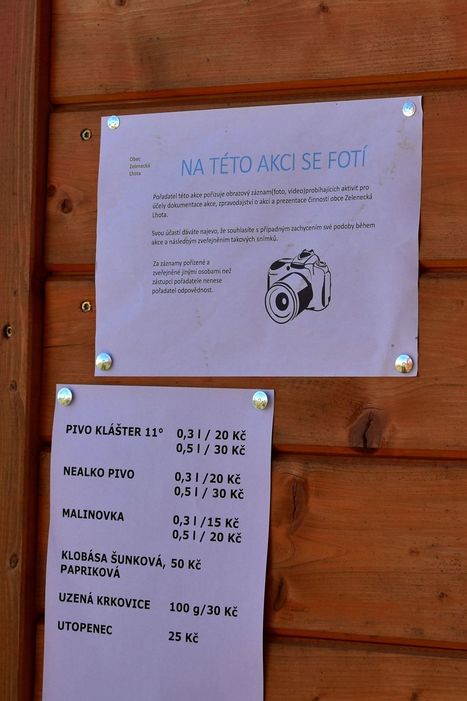 Obec
Zelenecká
Lhota
NA TÉTO AKCI SE FOTÍ
Pořadatel této akce pořizuje obrazový záznam(foto, video)probíhajících aktivit pro
účely dokumentace akce, zpravodajství o akci a prezentace činnosti obce Zelenecká
Lhota.
Svou účastí dáváte najevo, že souhlasíte s případným zachycením své podoby během
akce a následným zveřejněním takových snímků.
Za záznamy pořízené a
zveřejněné jinými osobami než
zástupci pořadatele nenese
pořadatel odpovědnost.
PIVO KLÁŠTER 11° 0,3 l / 20 Kč
0,5 l / 30 Kč
NEALKO PIVO 0,3 l /20 Kč
0,5 l / 30 Kč
MALINOVKA 0,3 l /15 Kč
0,5 l / 20 Kč
KLOBÁSA ŠUNKOVÁ, 50 Kč
PAPRIKOVÁ
UZENÁ KRKOVICE 100 g/30 Kč
UTOPENEC 25 Kč